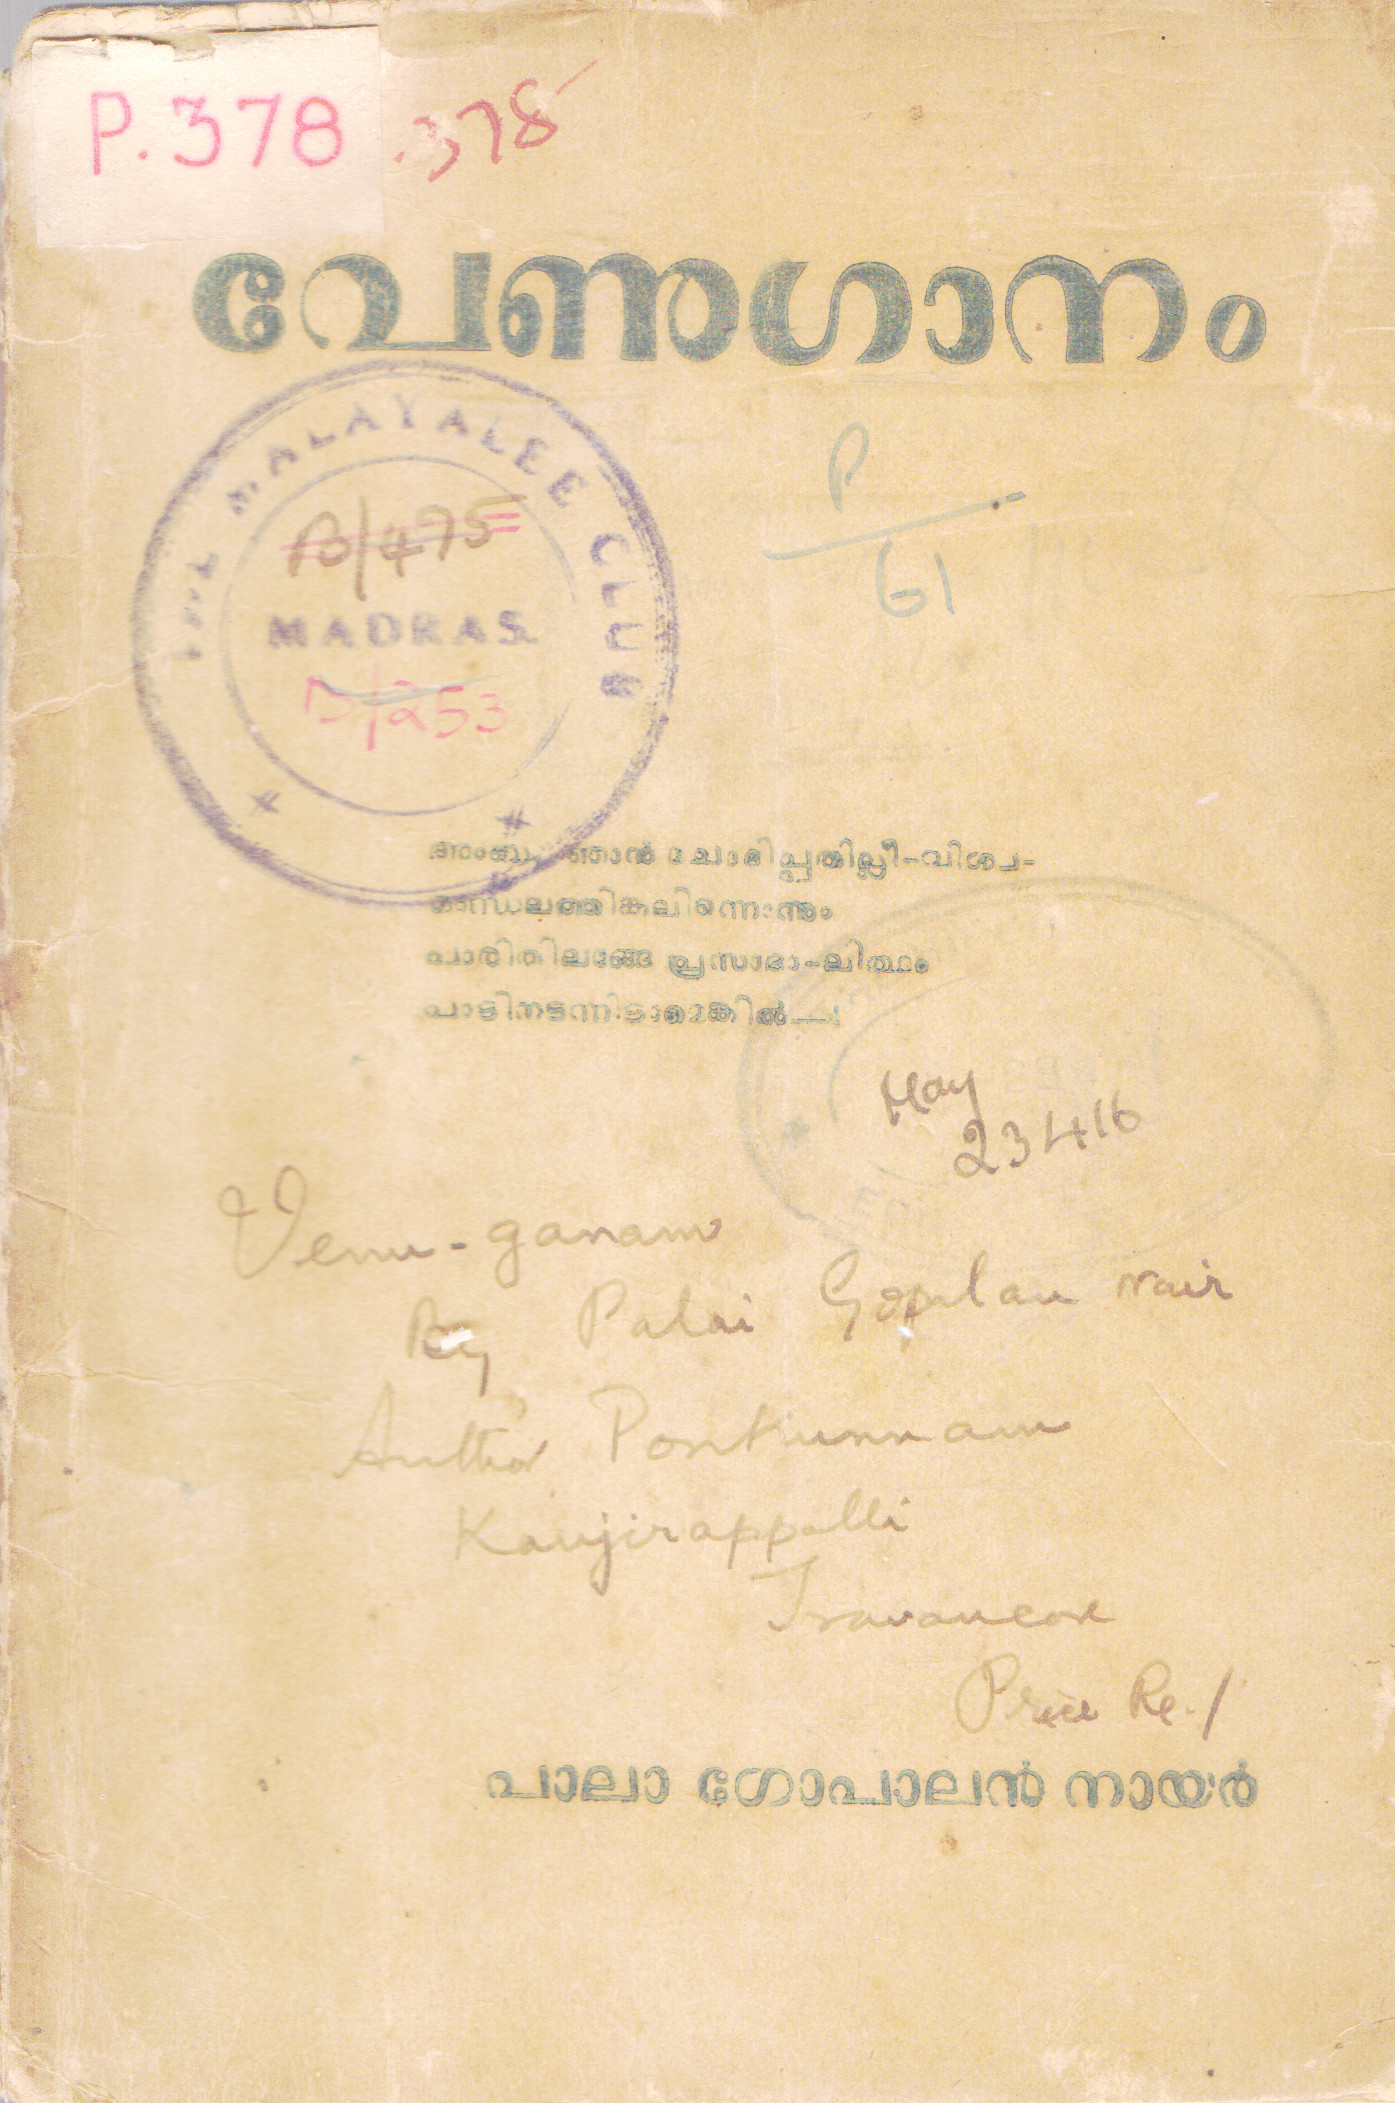 P.378
.378
വേണുഗാനം
THE MALAYALEE CLUB
B/475
MADRAS.
B/253
P
61
ഞാൻ ചോദിപ്പതില്ലീ-വിശ്വ-
മണ്ഡലത്തിങ്കലിന്നൊന്നും
പാരിതിലങ്ങേ പ്രസാദാ-ലിത്ഥം
പാടിനടന്നിടാമെങ്കിൽ—!
May
23416
Venu-ganam
By Palai Gopalan Nair
Author Ponkunnam
Kanjirappalli
Travancore
Price Re. 1
പാലാ ഗോപാലൻ നായർ